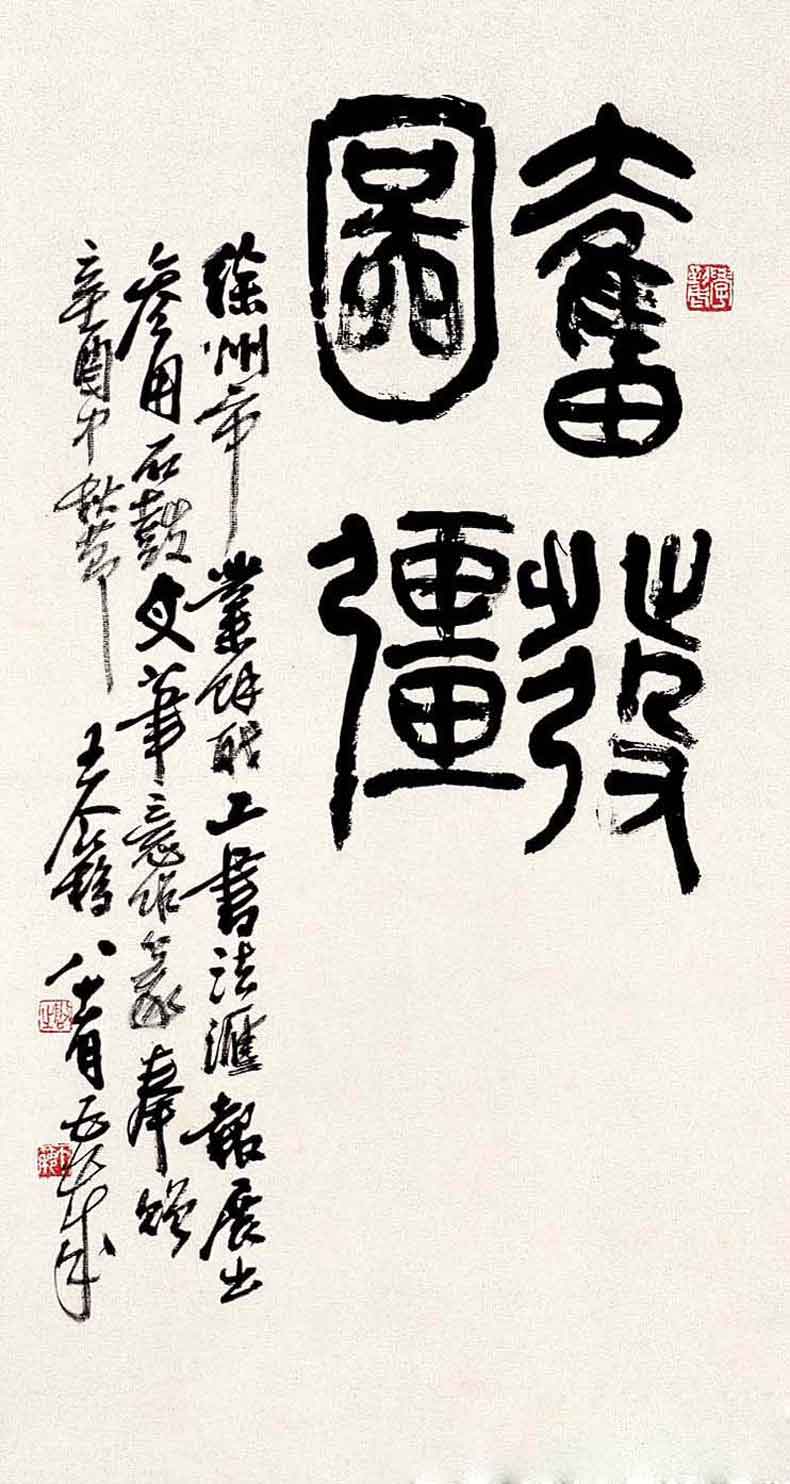 奮發
圖彊
徐州市業餘職工書法滙報展出
參用石鼓文筆意作篆奉贈
辛酉中秋節 王个簃八十有五年